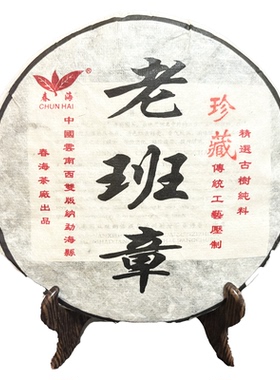 春海
CHUN HAI
®
老班章
珍藏
精選古樹純料
傳統工藝壓制
中國雲南西雙版納勐海縣
春海茶廠出品